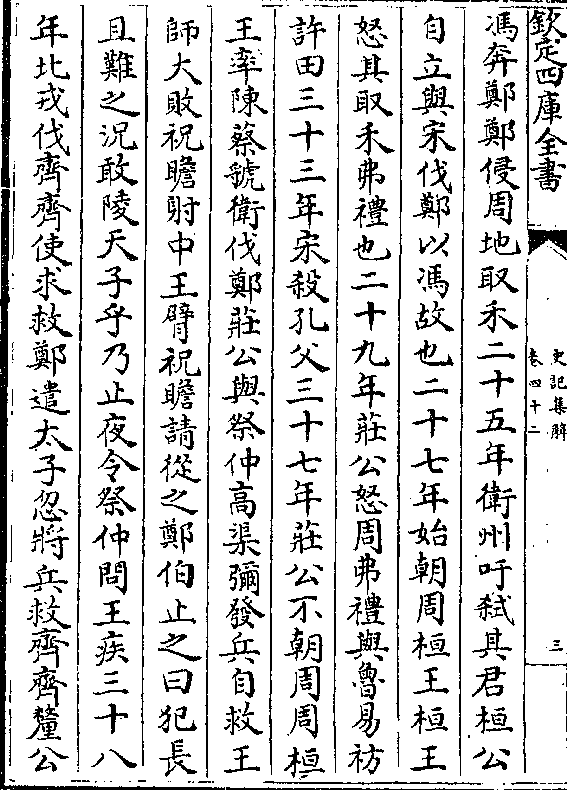 欽定四庫全書
史記集解
卷四十二
三
馮奔鄭鄭侵周地取禾二十五年衛州吁弑其君桓公
自立與宋伐鄭以馮故也二十七年始朝周桓王桓王
怒其取禾弗禮也二十九年莊公怒周弗禮與魯易祊
許田三十三年宋殺孔父三十七年莊公不朝周周桓
王率陳蔡虢衛伐鄭莊公與祭仲高渠彌發兵自救王
師大敗祝瞻射中王臂祝瞻請從之鄭伯止之曰犯長
且難之況敢陵天子乎乃止夜令祭仲問王疾三十八
年北戎伐齊齊使求救鄭遣太子忽將兵救齊齊釐公